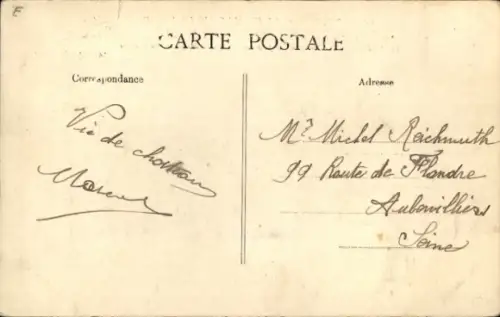 E
CARTE POSTALE
Correspondance
Adresse
Vie de chateau
Marcel
Mr Michel Reichmuth
99 Route de Flandre
Aubervilliers
Seine